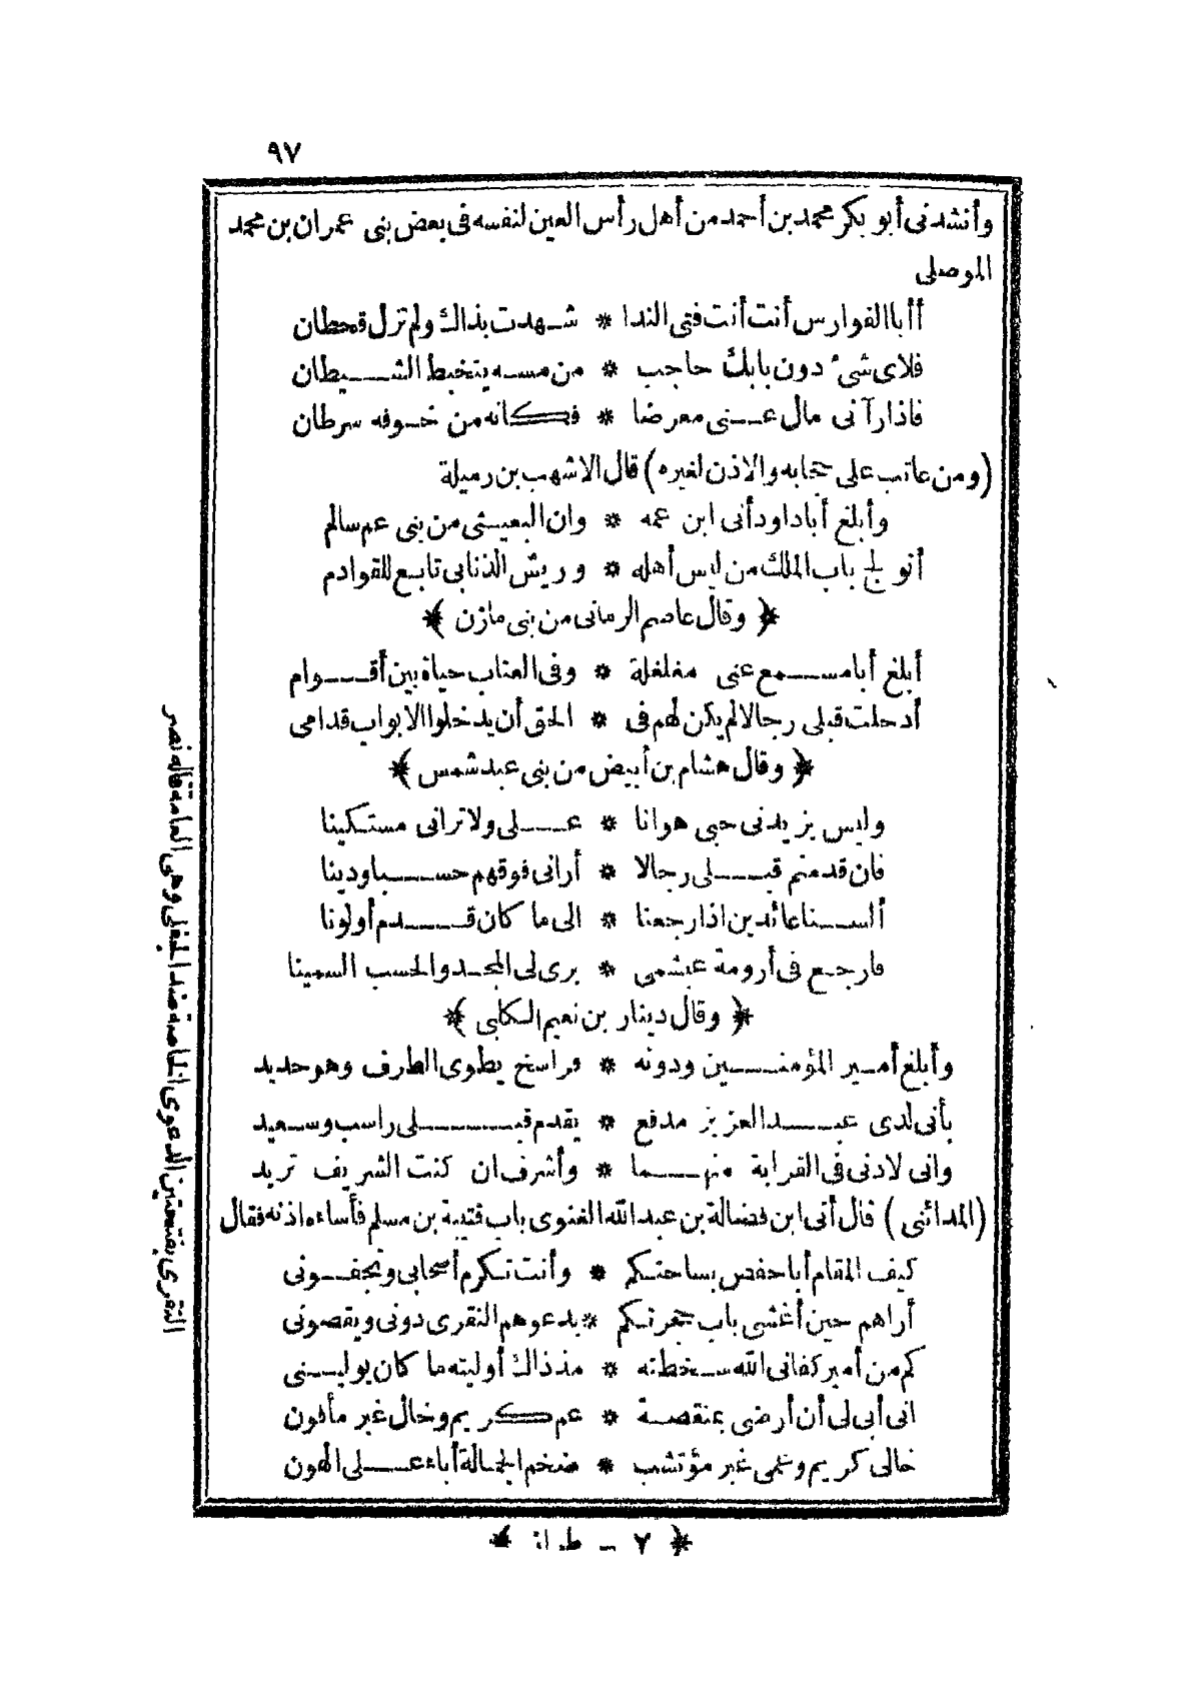 ٩٧
وأنشدنى أبو بكر محمد بن أحمد من أهل رأس العين لنفسه فى بعض بنى عمران بن محمد
الموصلى
أأبا الفوارس أنت أنت فتى الندا * شهدت بذاك ولم تزل قحطان
فلاى شئ دون بابك حاجب * من مسه يتخبط الشيطان
فاذا رآنى مال عنى معرضا * فكانه من خوفه سرطان
(ومن عاتب على حجابه والاذن لغيره) قال الاشهب بن رميلة
وأبلغ أبا داود أنى ابن عمه * وان البعيثى من بنى عم سالم
أتولج باب الملك من ليس أهله * وريش الذنابى تابع للقوادم
﴿ وقال عاصم الرمانى من بنى مازن ﴾
أبلغ أبا مسمع عنى مغلغلة * وفى العتاب حياة بين أقوام
أدخلت قبلى رجالا لم يكن لهم فى * الحق أن يدخلوا الابواب قدامى
﴿ وقال هشام بن أبيض من بنى عبد شمس ﴾
وليس يزيدنى حبى هوانا * على ولا ترانى مستكينا
فان قدمتم قبلى رجالا * أرانى فوقهم حسبا ودينا
ألسنا عائدين اذا رجعنا * الى ما كان قدم أولونا
فارجع فى أرومة عبشمى * برى لى المجد والحسب السمينا
﴿ وقال دينار بن نعيم الكلبى ﴾
وأبلغ أمير المؤمنين ودونه * فراسخ يطوى الطرف وهو حديد
بأنى لدى عبد العزيز مدفع * يقدم قبلى راسب وسعيد
وانى لادنى فى القرابة منهما * وأشرف ان كنت الشريف تريد
(المدائنى) قال أتى ابن فضالة بن عبد الله الغنوى باب قتيبة بن مسلم فأساء اذنه فقال
كيف المقام أبا حفص بساحتكم * وأنت تكرم أصحابى وتجفونى
أراهم حين أغشى باب حجرتكم * يدعوهم النقرى دونى ويقصونى
كم من أمير كفانى الله سخطته * مذ ذاك أوليته ما كان يوليسنى
انى أبى لى أن أرضى بمنقصة * عم كريم وخال غير مأفون
خالى كريم وعمى غير مؤتشب * ضخم الجمالة أباء على الهون
﴿ ٧ - طراز ﴾
النقرى بفتحتين الدعوى الخاصة ضد الجفلى وهى العامة قاله نصر